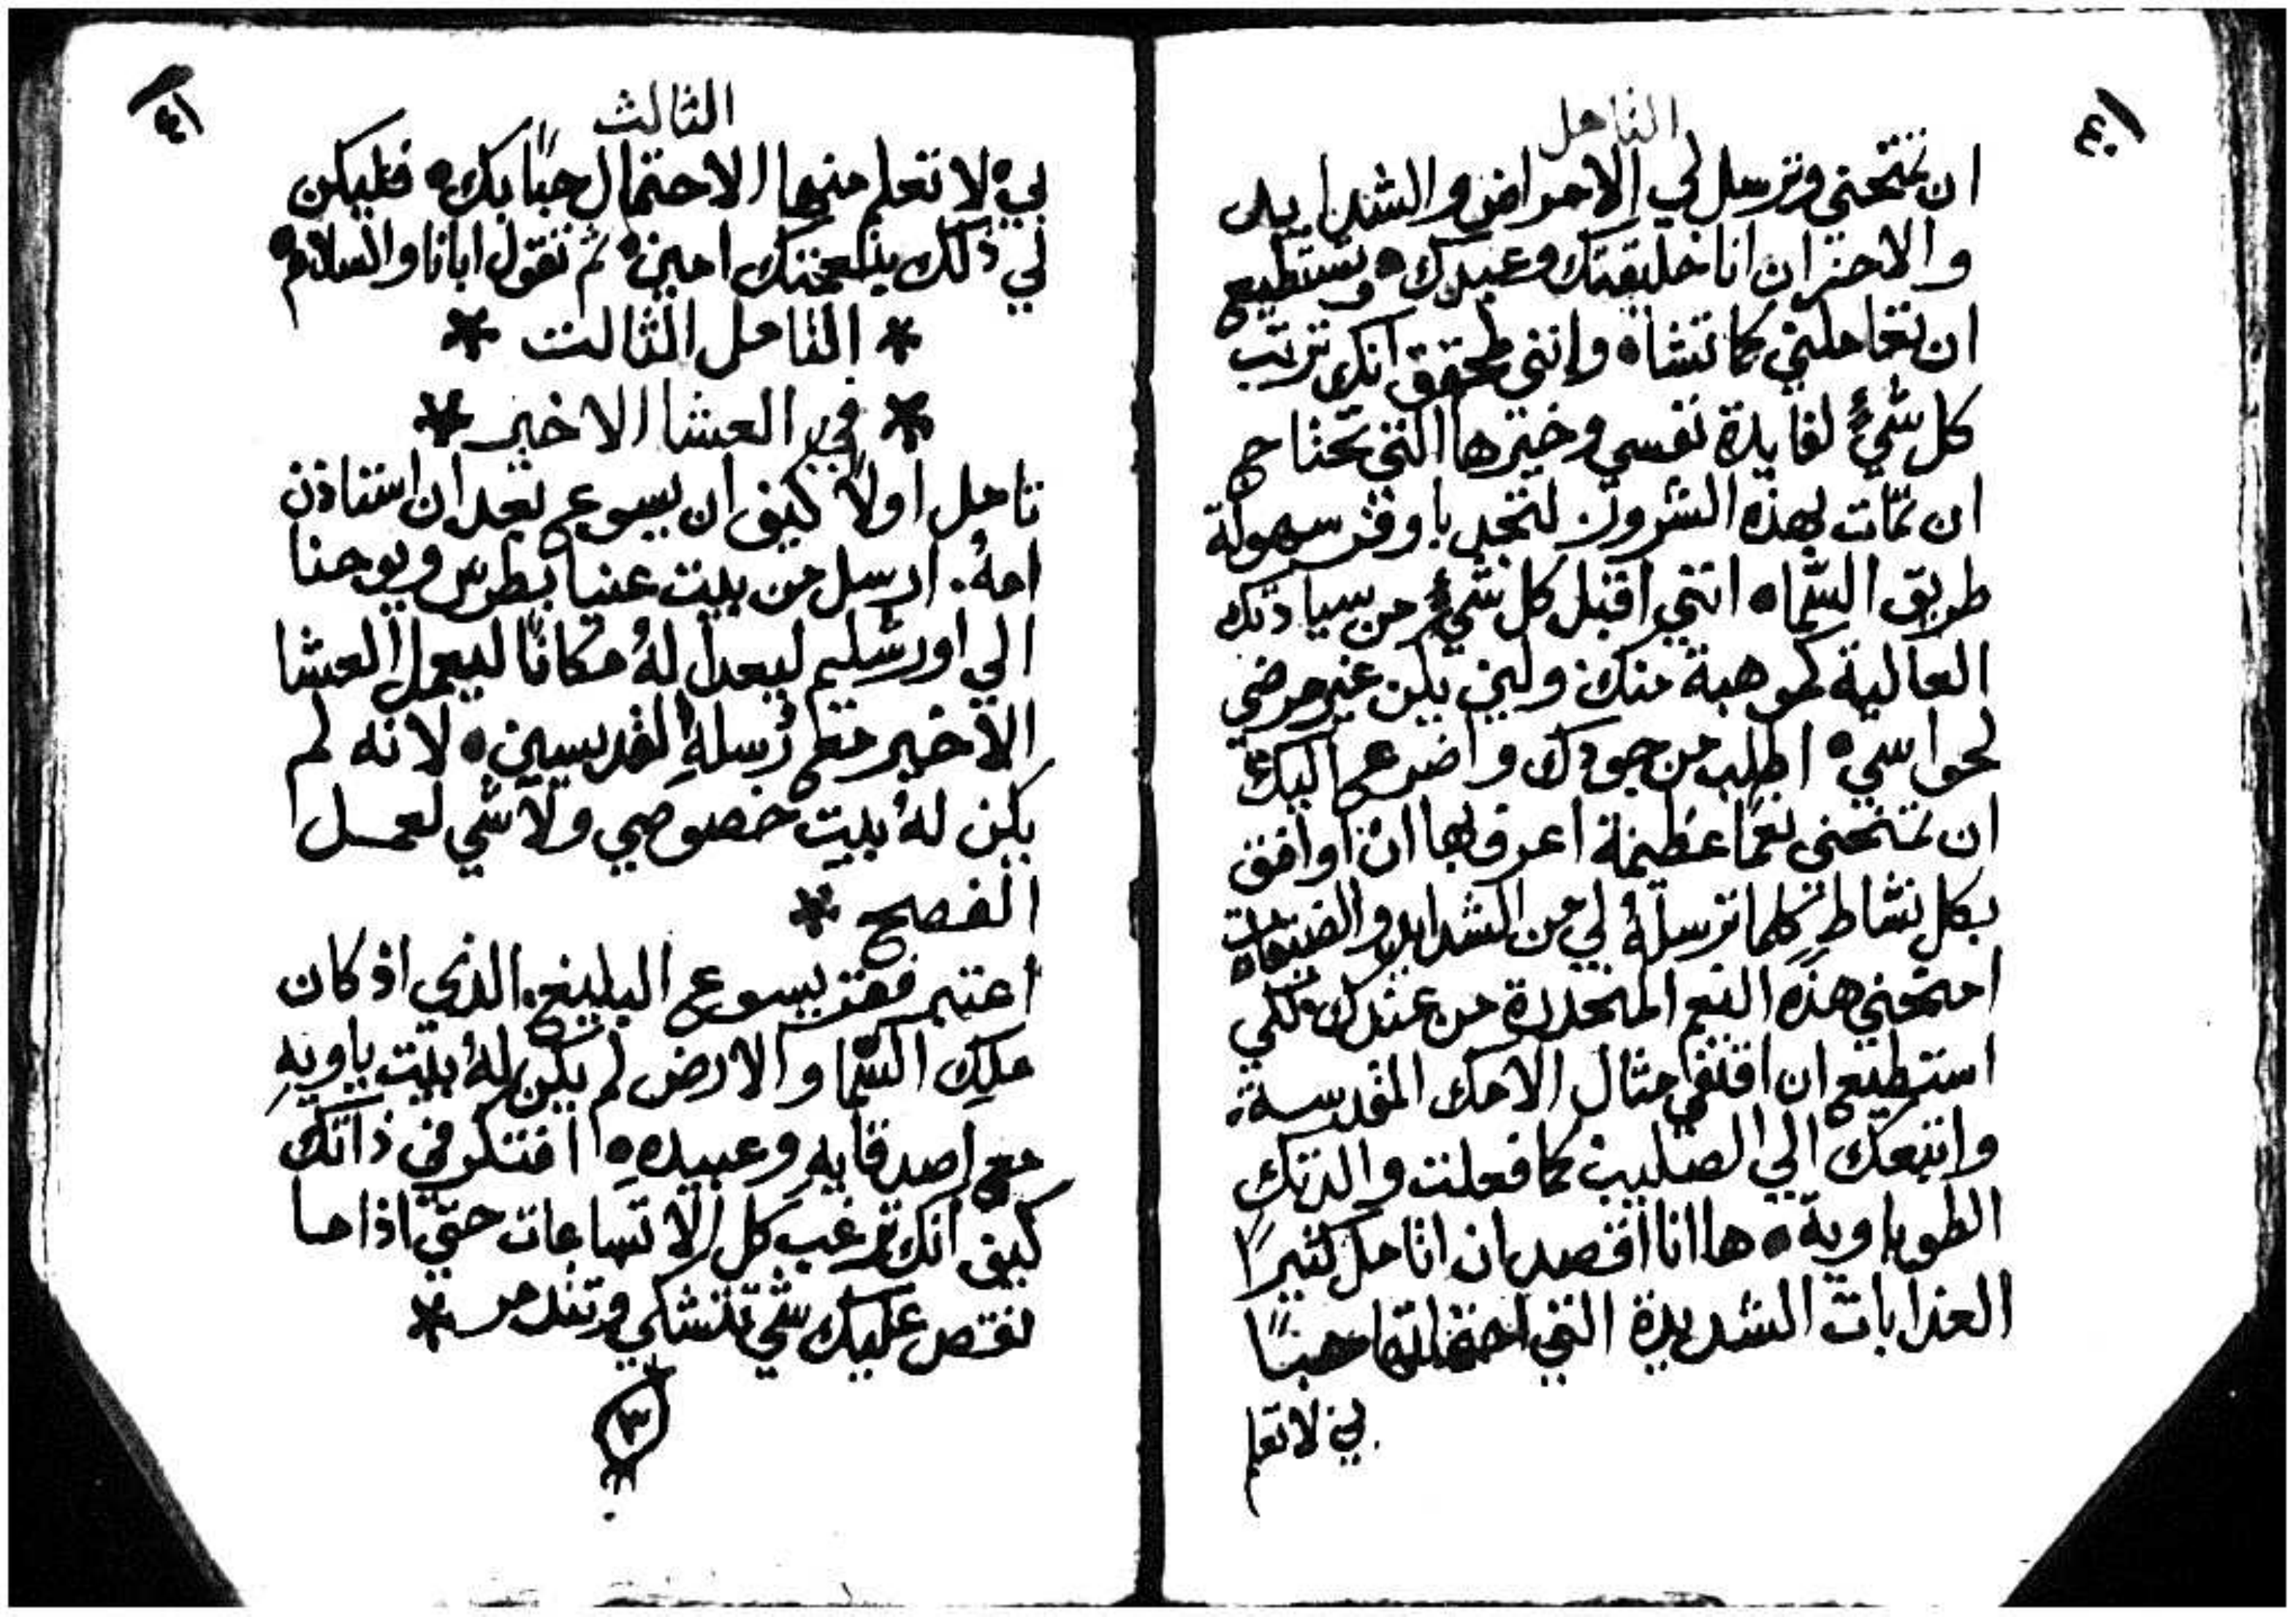 ٤٠
التامل
ان تمتحني وترسل لي الامراض والشدايد
والاحزان انا خليقتك وعبدك ۰ وتستطيع
ان تعاملني كما تشاه وانني محقق انك ترتب
كل شيءٍ لفايدة نفسي وخيرها التي تحتاج
ان تمات بهذه الشرور لتجد باوفر سهولة
طريق السما ۰ انني اقبل كل شيءٍ من سيادتك
العالية كموهبة منك ولين يكن غير مرضي
لحواسي ۰ اطلب من جودك واضرع اليك
ان تمنحني نعمًا عظيمة اعرف بها ان اوافق
بكل نشاطٍ كلما ترسلهُ لي من الشدايد والضيقات
امنحني هذه النعم المنحدرة من عندك لكي
استطيع ان اقتفي مثال الامك المقدسة
واتبعك الي الصليب كما فعلت والدتك
الطوباوية ۰ ها انا اقصد ان اتامل كثيرًا
العذابات الشديدة التي احتملتها حبًا
بي لاتعلم
٤١
الثالث
بي ۰ لاتعلم منها الاحتمال حبًا بك ۰ فليكن
لي ذلك بنعمتك امين ۰ ثم تقول ابانا والسلام ۰
* التامل الثالث *
* في العشا الاخير *
تامل اولاً كيف ان يسوع بعد ان استاذن
امهُ. ارسل من بيت عنيا بطرس ويوحنا
الي اورشليم ليعدا لهُ مكانًا ليعمل العشا
الاخير مع رسلهِ القديسين ۰ لانه لم
يكن لهُ بيت خصوصي ولا شي لعمل
الفصح *
اعتبر فقر يسوع البليغ. الذي اذ كان
ملك السما والارض لم يكن لهُ بيت ياويهِ
مع اصدقايهِ وعبيده ۰ افتكر في ذاتك
كيف انك ترغب كل الاتساعات حتي اذا ما
نقص عليك شي تتشكي وتتدمر *
٣